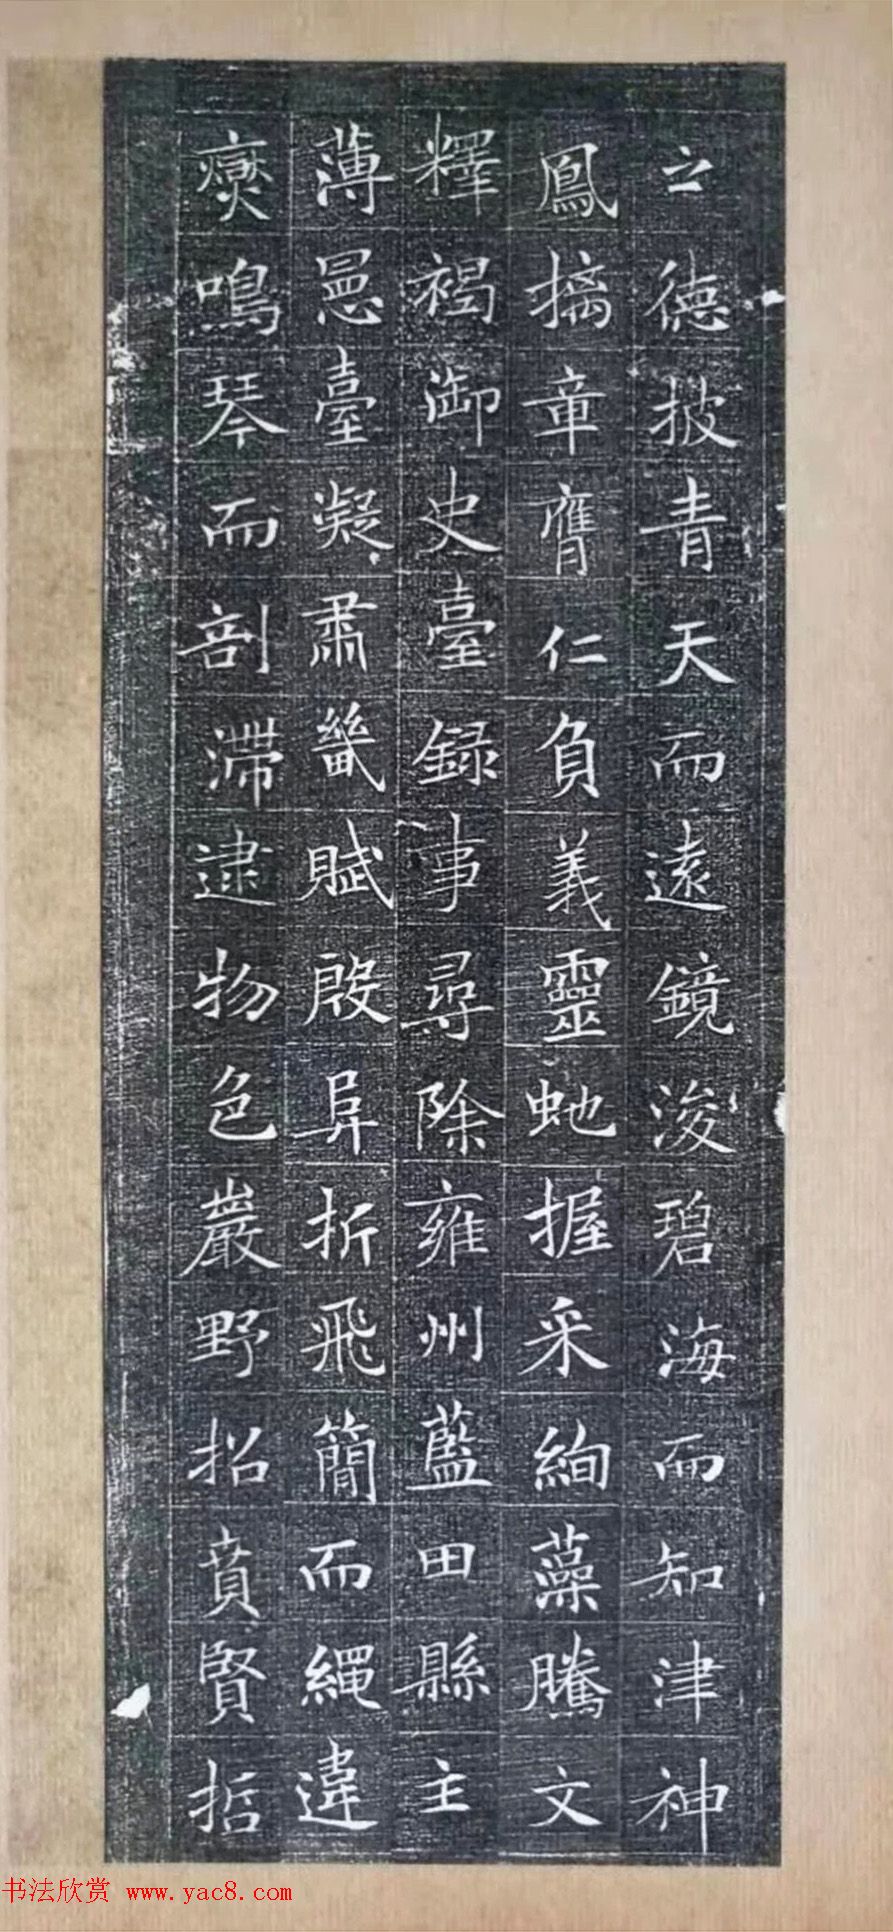 之德披青天而遠鏡浚碧海而知津神
鳳摛章膺仁負義靈虵握采絢藻騰文
釋褐御史臺録事尋除雍州藍田縣主
薄邑臺凝肅畿賦殷阜折飛簡而繩違
爕鳴琴而剖滯逮物色巖野招賁賢哲
书法欣赏 www.yac8.com